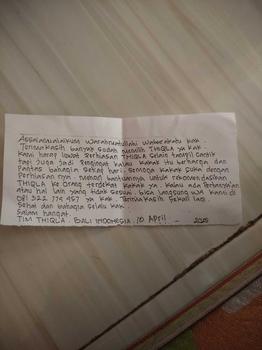 Assalamualaikum Warahmatullahi Wabarakatu kak.
Terimakasih banyak sudah memilih THIQLA ya kak
Kami harap lewat perhiasan THIQLA selain tampil cantik
tapi juga jadi pengingat kalau kakak itu berharga dan
Pantas bahagia setiap hari. semoga kakak suka dengan
Perhiasan nya. mohon bantuannya untuk rekomendasikan
THIQLA ke orang terdekat kakak ya. kalau ada Pertanyaan
atau hal lain yang tidak sesuai bisa langsung WA kami di
081 222 774 957 ya kak. Terimakasih sekali lagi.
Sehat dan bahagia selalu kak.
Salam hangat.
TIM THIQLA. BALI INDONESIA. 10 April - 2025